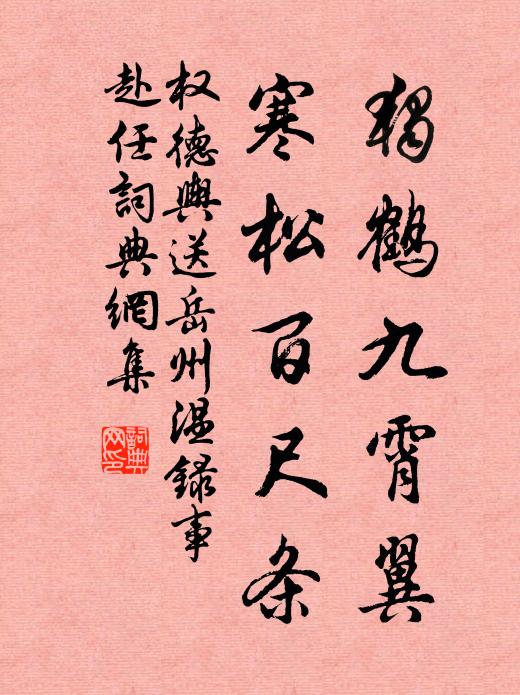 独鹤九霄翼
寒松百尺条
权德舆送岳州温録事
赴任詞典網集
詞典
网印